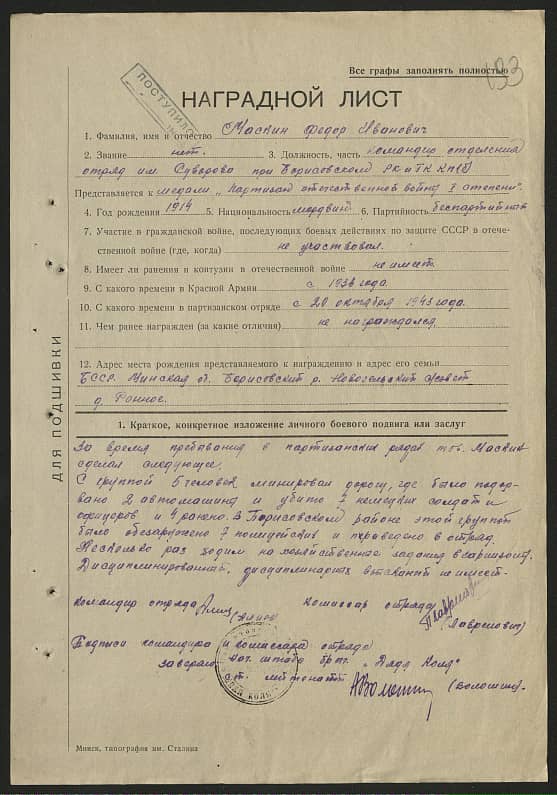 Все графы заполнять полностью
193
ПОСТУПИЛО
НАГРАДНОЙ ЛИСТ
1. Фамилия, имя и отчество Маскин Федор Иванович
2. Звание нет. 3. Должность, часть командир отделения
отряд им. Суворова при Борисовском РК и ГК КП(б)Б
Представляется к медали „Партизан отечественной войны I степени".
4. Год рождения 1914 5. Национальность мордвин 6. Партийность беспартийная
7. Участие в гражданской войне, последующих боевых действиях по защите СССР в отече-
ственной войне (где, когда) не участвовал.
8. Имеет ли ранения и контузии в отечественной войне не имеет.
9. С какого времени в Красной Армии с 1936 года.
10. С какого времени в партизанском отряде с 20 октября 1943 года.
11. Чем ранее награжден (за какие отличия) не награждался
12. Адрес места рождения представляемого к награждению и адрес его семьи
БССР. Минская об. Борисовский р. Новосельский с/совет
д.
ДЛЯ ПОДШИВКИ
1. Краткое, конкретное изложение личного боевого подвига или заслуг
За время пребывания в партизанских рядах тов. Маскин
сделал следующее.
С группой 5 человек минировал дорогу, где было подор-
вано 2 автомашины и убито 7 немецких солдат и
офицеров и 4 ранено. В Борисовском районе этой группой
было обезоружено 7 полицейских и приведено в отряд.
Несколько раз ходил на хозяйственные задания в гарнизоны.
Дисциплинирован, дисциплинарных взысканий не имеет.
Командир отряда Комиссар отряда
(Лавренович)
Подписи командира и комиссара отряда
заверяю: Нач. штаба бриг. „Дяди Коли"
ст. лейтенант (Волошин).
Минск, типография им. Сталина